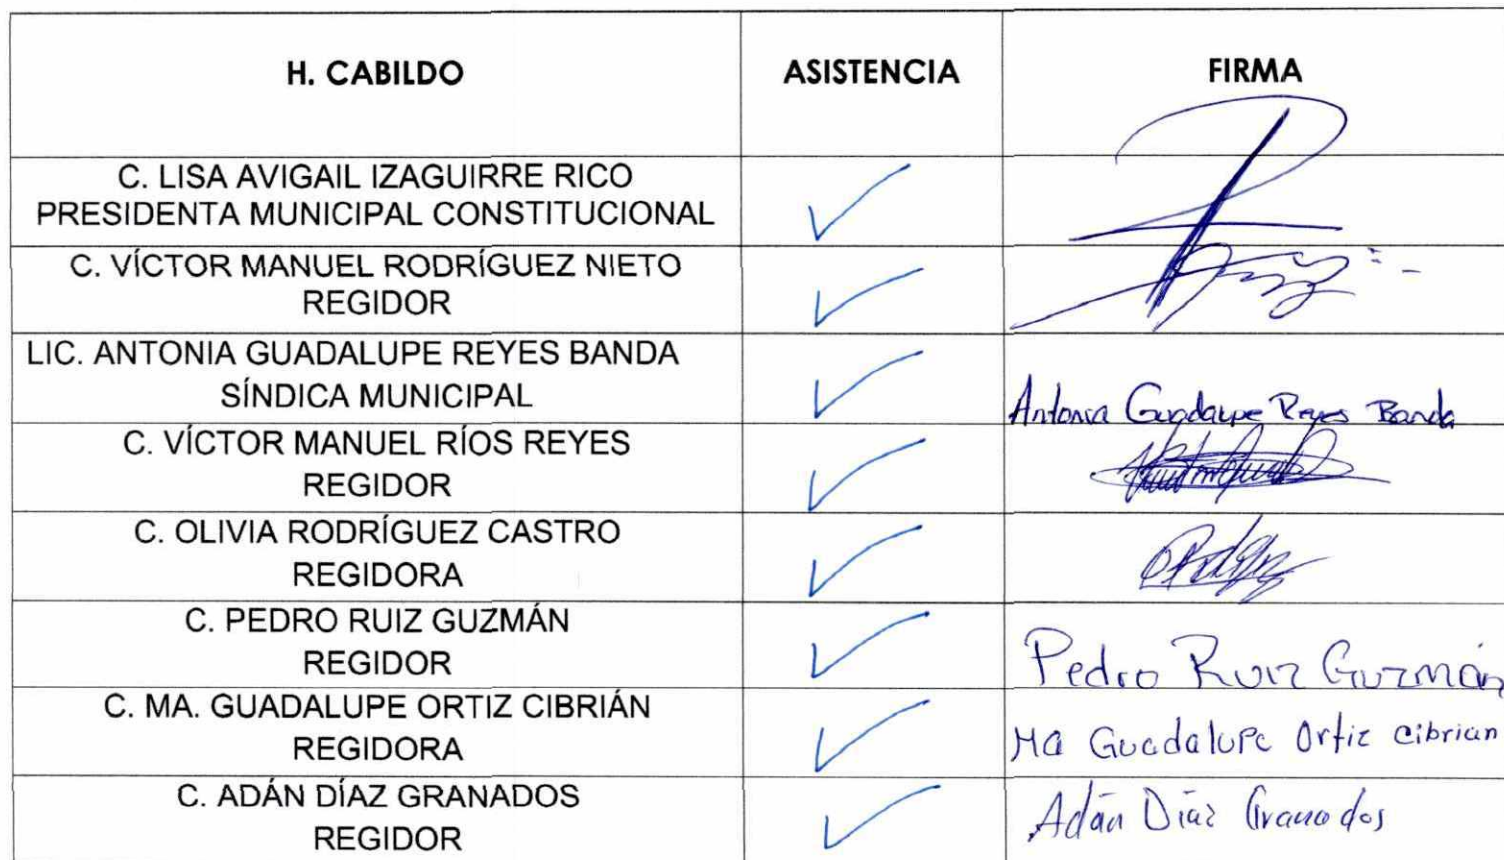 H. CABILDO ASISTENCIA FIRMA
C. LISA AVIGAIL IZAGUIRRE RICO
PRESIDENTA MUNICIPAL CONSTITUCIONAL
C. VÍCTOR MANUEL RODRÍGUEZ NIETO
REGIDOR
LIC. ANTONIA GUADALUPE REYES BANDA
SÍNDICA MUNICIPAL
Antonia Guadalupe Reyes Banda
C. VÍCTOR MANUEL RÍOS REYES
REGIDOR
C. OLIVIA RODRÍGUEZ CASTRO
REGIDORA
C. PEDRO RUIZ GUZMÁN
REGIDOR
Pedro Ruiz Guzmán
C. MA. GUADALUPE ORTIZ CIBRIÁN
REGIDORA
Ma Guadalupe Ortiz cibrian
C. ADÁN DÍAZ GRANADOS
REGIDOR
Adán Díaz Granados